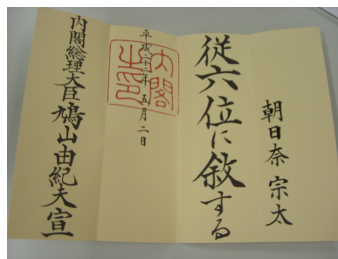 朝日奈 宗太
従六位に敘する
平成二十二年 五月二日
内閣之印
内閣総理大臣鳩山由紀夫宣